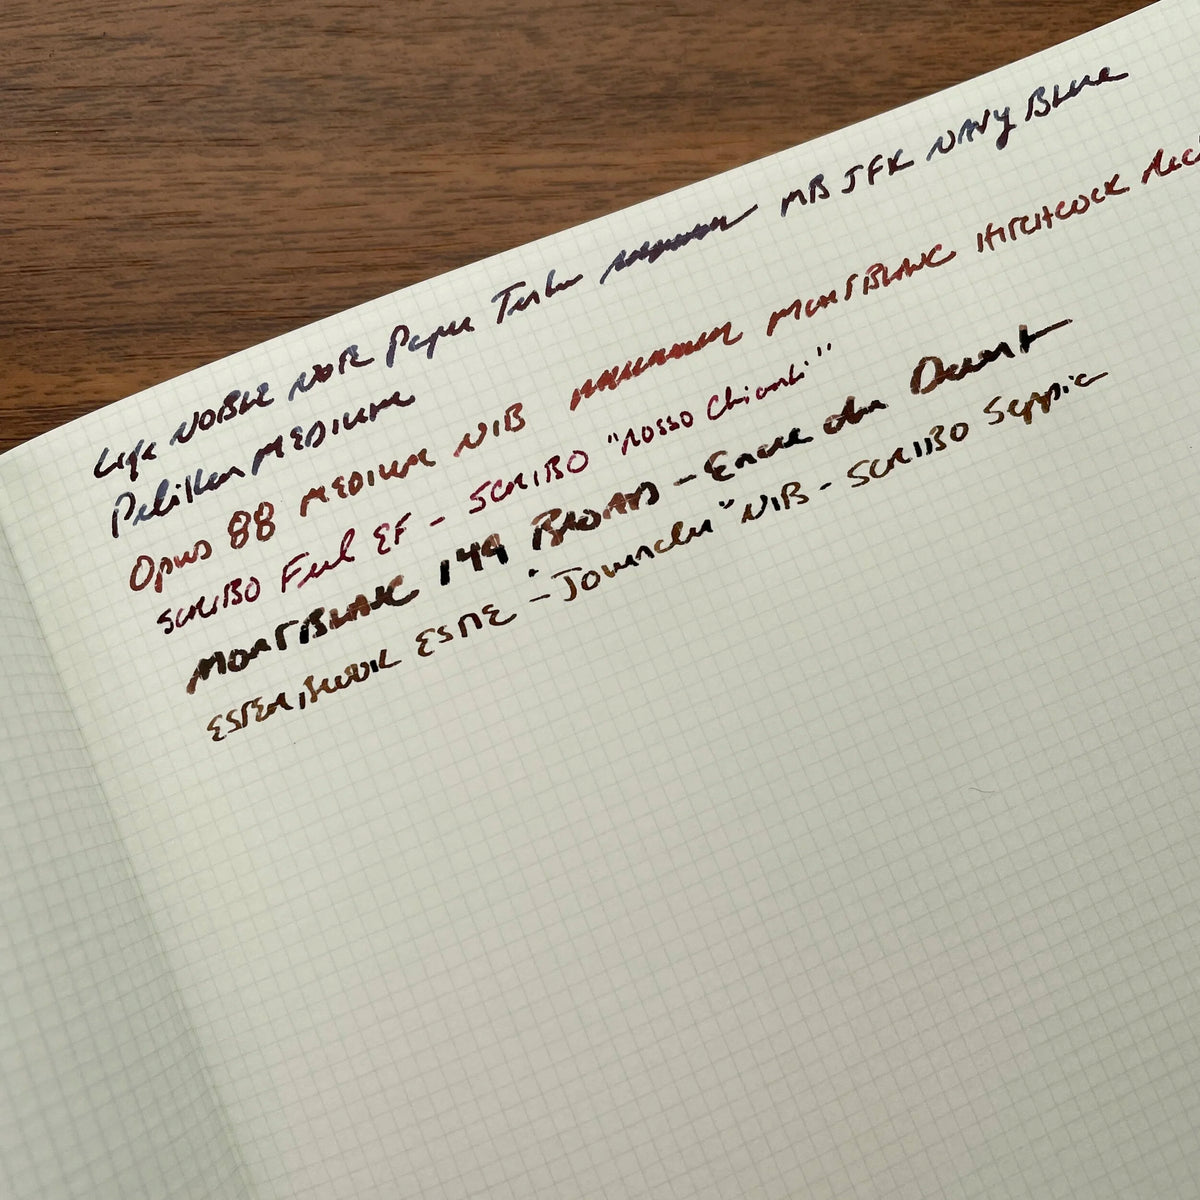 Life NOBLE NOTE Paper Tester MB JFK NAVY Blue
Pelikan MEDIUM
Opus 88 MEDIUM NIB MONTBLANC HITCHCOCK Red
SCRIBO Feel EF - SCRIBO "Rosso Chianti"
MONTBLANC 149 BROAD - Encre du Desert
ESTERBROOK ESTIE - "Journaler" NIB - SCRIBO Seppia